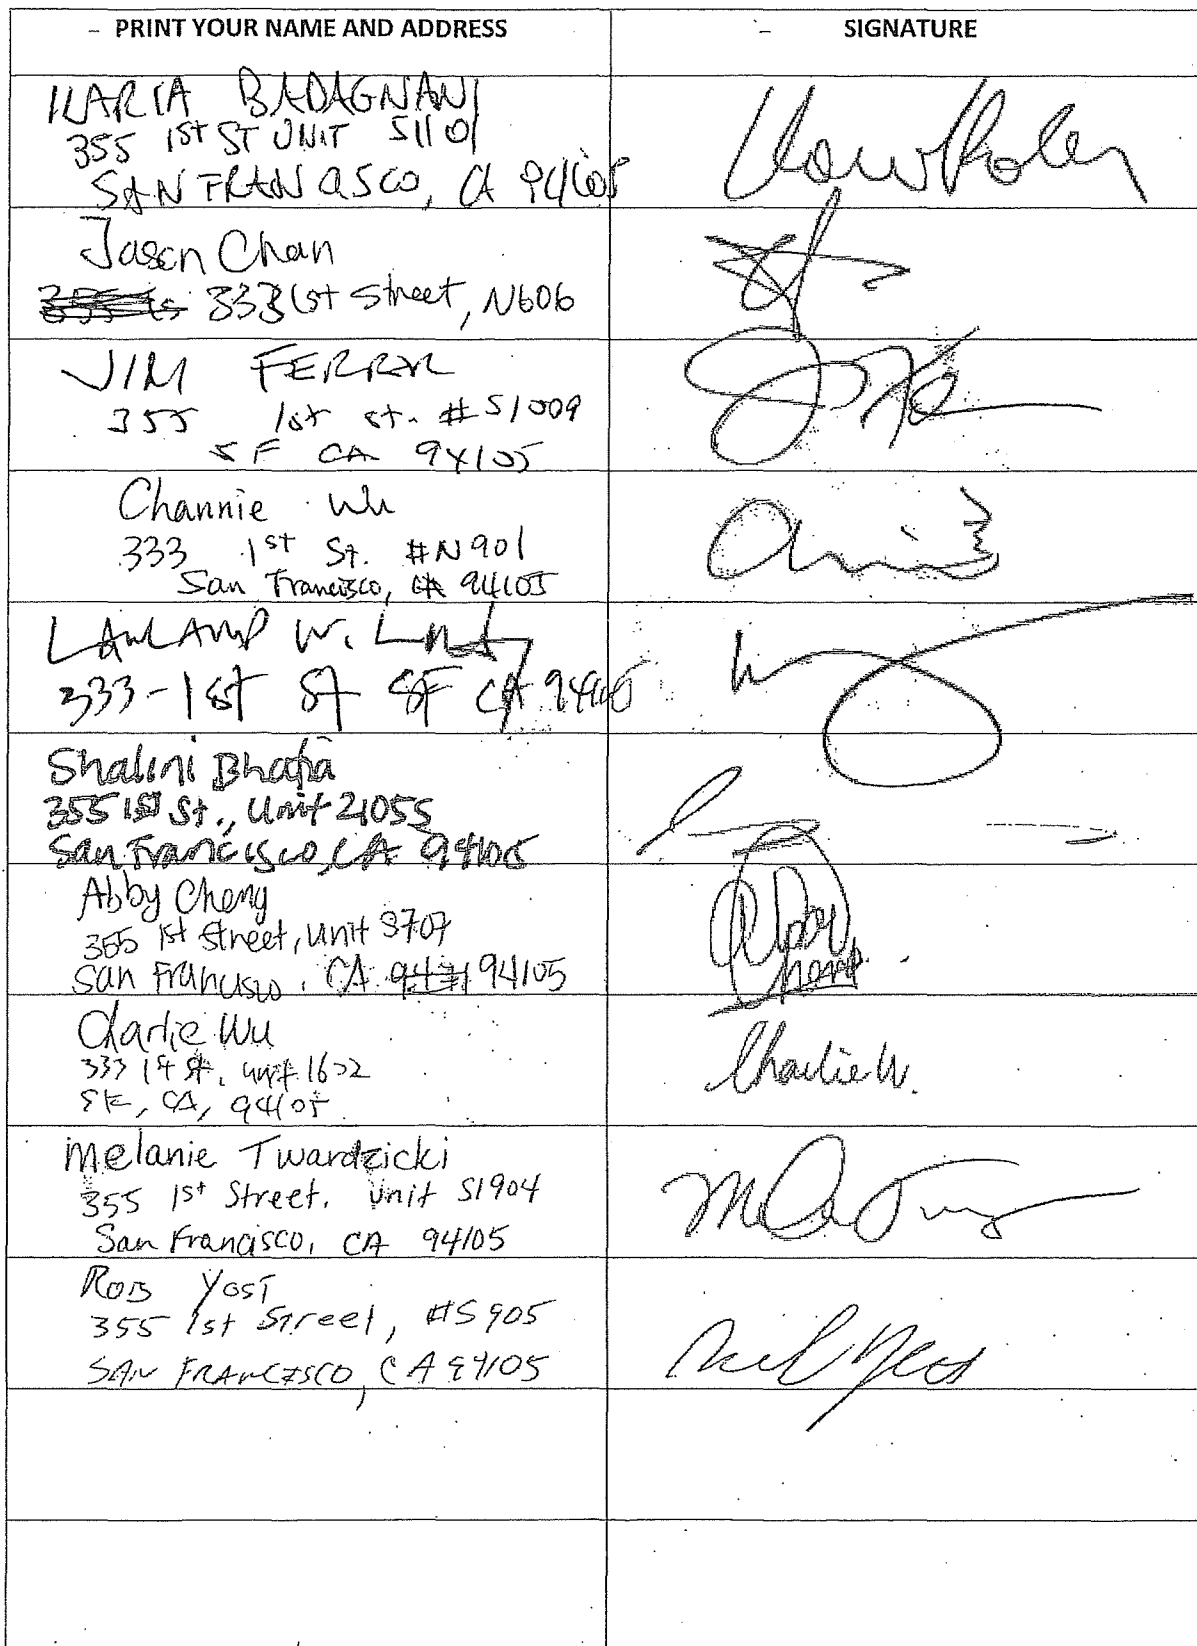 PRINT YOUR NAME AND ADDRESS
SIGNATURE
ILARIA BADAGNANI
355 1ST ST UNIT S1101
SAN FRANCISCO, CA 94105
Jason Chan
333 1st Street, N606
JIM FERRAR
355 1st st. #S1009
SF CA 94105
Channie Wu
333 1st St. #N901
San Francisco, CA 94105
W.
333-1st St SF CA 94105
Shalini Bhatia
355 1st St., Unit
San Francisco, CA 94105
Abby Cheng
355 1st Street, Unit 3707
San Francisco, CA 94105
Abby Cheng
Charlie Wu
333 1st St. unit 1602
SF, CA, 94105
Charlie W.
Melanie Twardzicki
355 1st Street. Unit S1904
San Francisco, CA 94105
ROB YOST
355 1st Street, #S905
SAN FRANCISCO, CA 94105